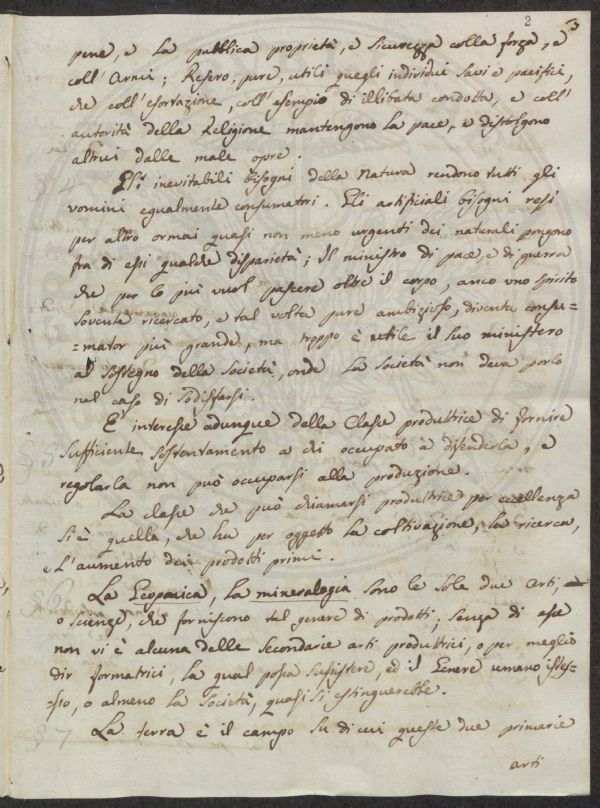 2 3
pene, e la pubblica proprietà, e sicurezza colla forza, e
coll'Armi; Resero, pure, utili quegli individui savi e pacifici,
che coll'esortazione, coll'esempio di illibata condotta, e coll'
autorità della Religione mantengono la pace, e distolgono
altrui dalle male opre.
Gl'inevitabili bisogni della Natura rendono tutti gli
uomini egualmente consumatori. Gli artificiali bisogni resi
per altro ormai quasi non meno urgenti dei naturali pongono
fra di essi qualche disparietà; Il ministro di pace, e di guerra
che per lo più vuol pascere oltre il corpo, anco uno spirito
sovente ricercato, e tal volta pure ambizioso, diventa consu=
=mator più grande, ma troppo è utile il suo ministero
al sostegno della Società, onde la Società non deva porlo
nel caso di sodisfarsi.
È interesse adunque della Classe produttrice di fornire
sufficiente sostentamento a chi occupato a difenderla, e
regolarla non può occuparsi alla produzione.
La classe che può chiamarsi produttrice per eccellenza
si è quella, che ha per oggetto la coltivazione, la ricerca,
e l'aumento dei prodotti primi.
La Geoponica, la mineralogia sono le sole due arti,
o scienze, che forniscono tal genere di prodotti; senza di esse
non vi è alcuna delle secondarie arti produttrici, o per meglio
dir formatrici, la qual possa sussistere, ed il Genere umano istes=
=so, o almeno la Società, quasi si estinguerebbe.
La terra è il campo su di cui queste due primarie
arti